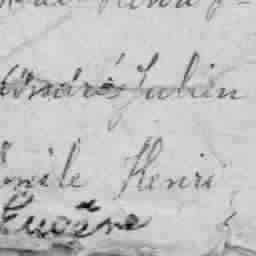 André Julien
Emile Henri
Eugène